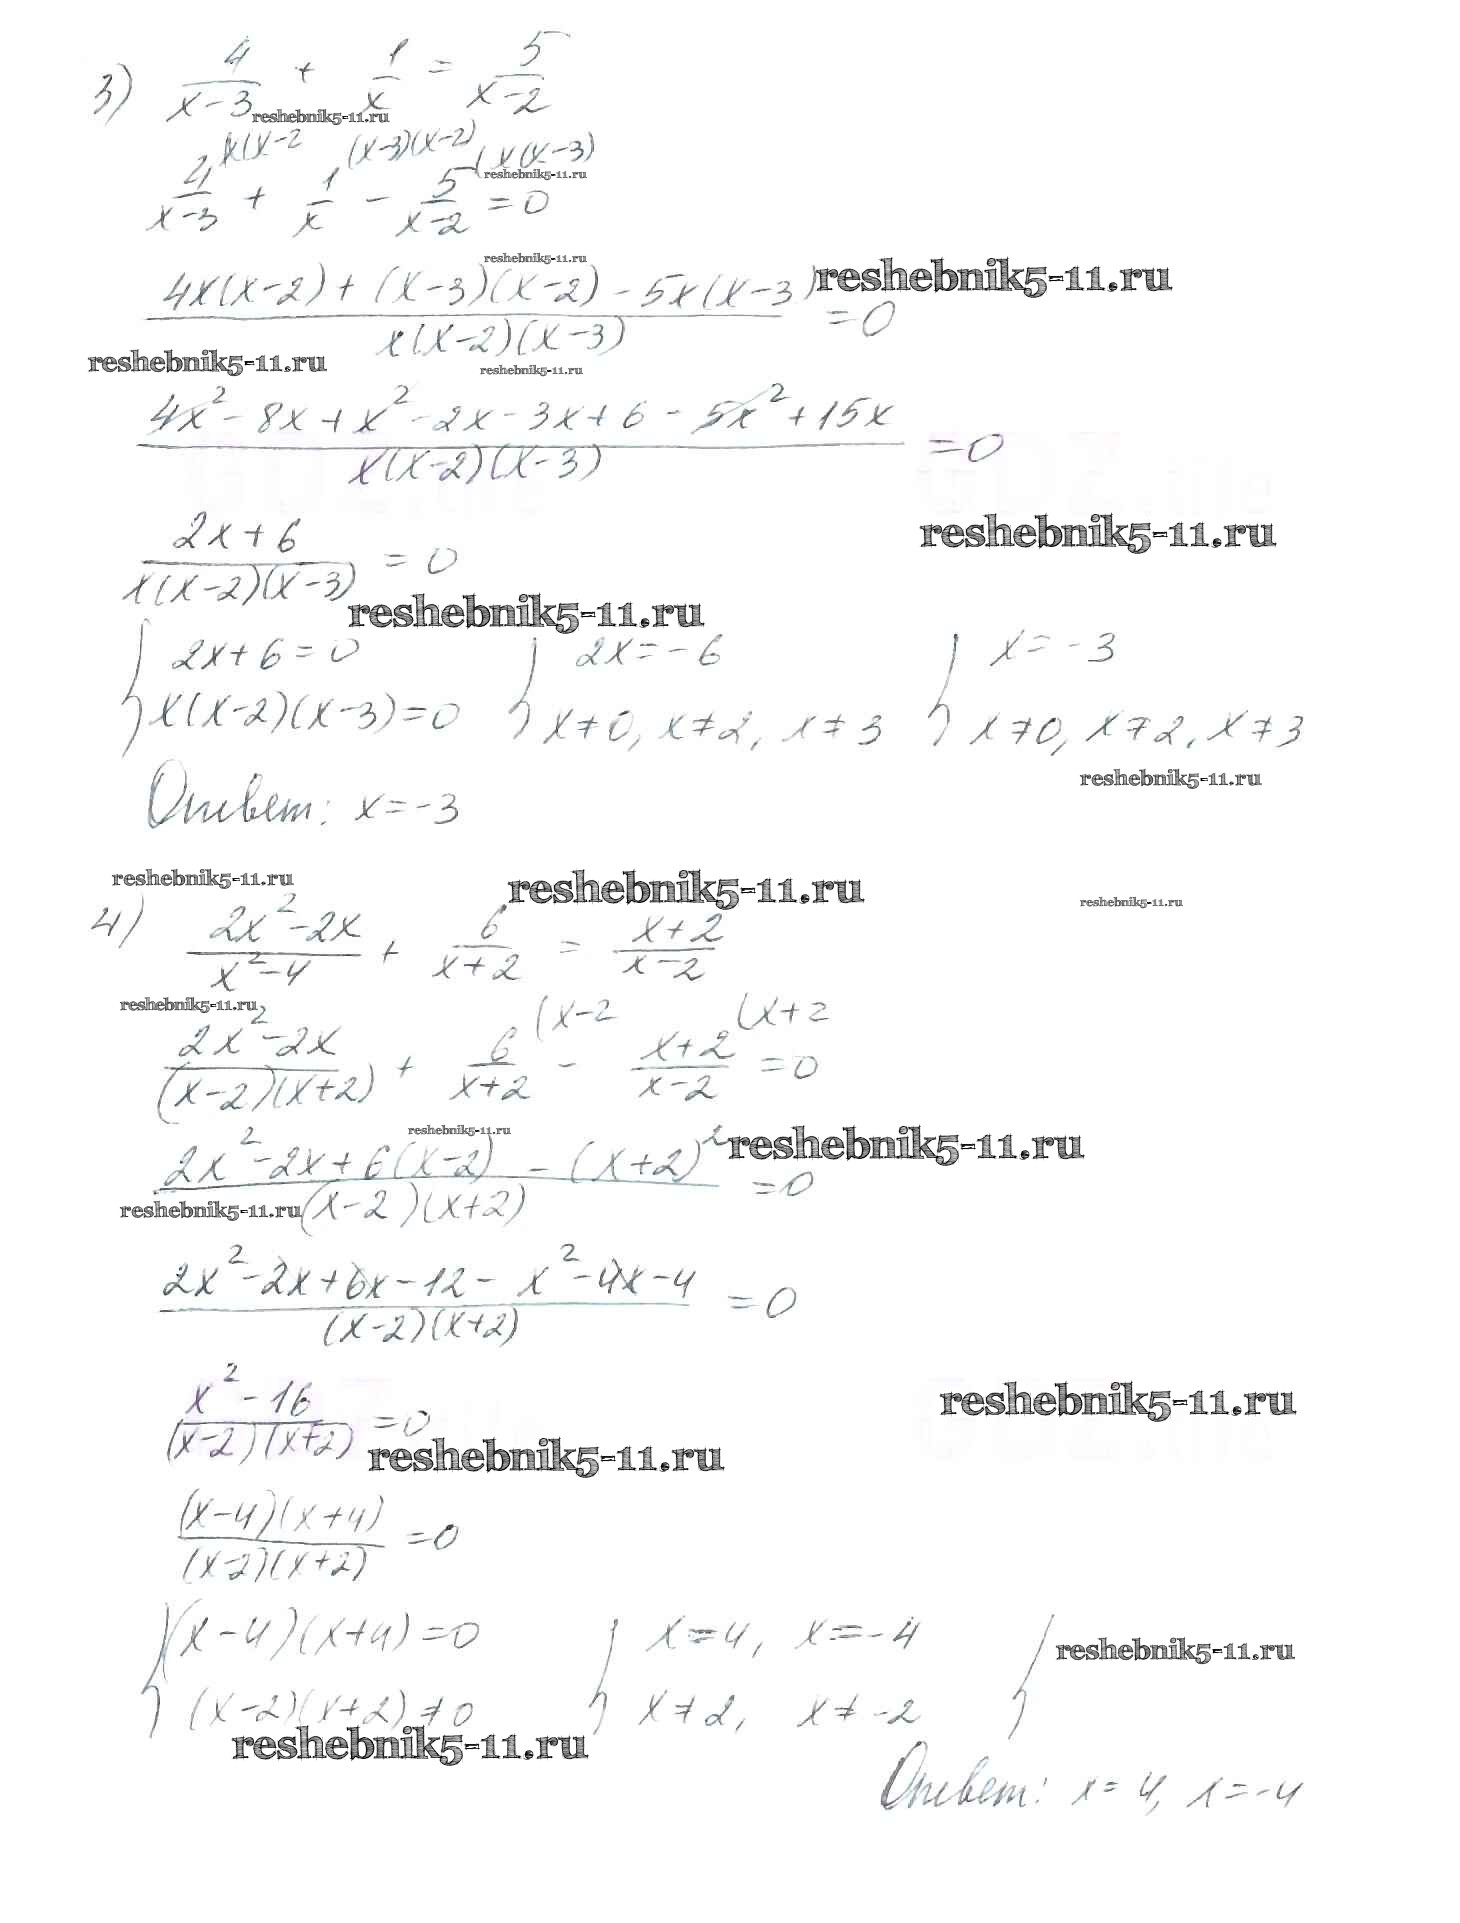 3) 4/(x-3) + 1/x = 5/(x-2)
reshebnik5-11.ru
4/(x-3) (x(x-2 + 1/x (x-3)(x-2) - 5/(x-2) (x(x-3) = 0
reshebnik5-11.ru
reshebnik5-11.ru
(4x(x-2) + (x-3)(x-2) - 5x(x-3))/(x(x-2)(x-3)) = 0
reshebnik5-11.ru
reshebnik5-11.ru
reshebnik5-11.ru
(4x² - 8x + x² - 2x - 3x + 6 - 5x² + 15x)/(x(x-2)(x-3)) = 0
(2x + 6)/(x(x-2)(x-3)) = 0
reshebnik5-11.ru
reshebnik5-11.ru
{ 2x + 6 = 0 { 2x = -6 { x = -3
x(x-2)(x-3) = 0 x ≠ 0, x ≠ 2, x ≠ 3 x ≠ 0, x ≠ 2, x ≠ 3
reshebnik5-11.ru
Ответ: x = -3
reshebnik5-11.ru
reshebnik5-11.ru
reshebnik5-11.ru
4) (2x² - 2x)/(x² - 4) + 6/(x+2) = (x+2)/(x-2)
reshebnik5-11.ru
(2x² - 2x)/((x-2)(x+2)) + 6/(x+2) (x-2 - (x+2)/(x-2) (x+2 = 0
reshebnik5-11.ru
(2x² - 2x + 6(x-2) - (x+2)²)/((x-2)(x+2)) = 0
reshebnik5-11.ru
reshebnik5-11.ru
(2x² - 2x + 6x - 12 - x² - 4x - 4)/((x-2)(x+2)) = 0
(x² - 16)/((x-2)(x+2)) = 0
reshebnik5-11.ru
reshebnik5-11.ru
((x-4)(x+4))/((x-2)(x+2)) = 0
{ (x-4)(x+4) = 0 { x = 4, x = -4 {
reshebnik5-11.ru
(x-2)(x+2) ≠ 0 x ≠ 2, x ≠ -2
reshebnik5-11.ru
Ответ: x = 4, x = -4